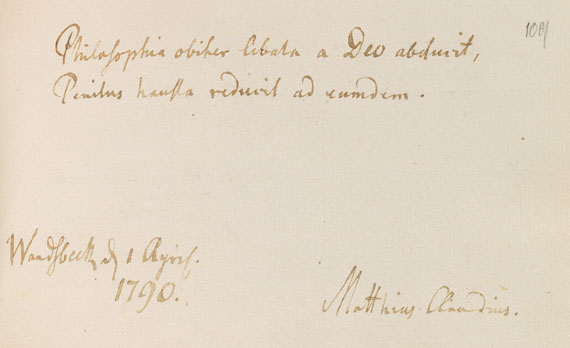 109
Philosophia obiter libata a Deo abducit,
Penitus hausta reducit ad eumdem.
Wandsbeck d 1 April.
1790.
Matthias Claudius.